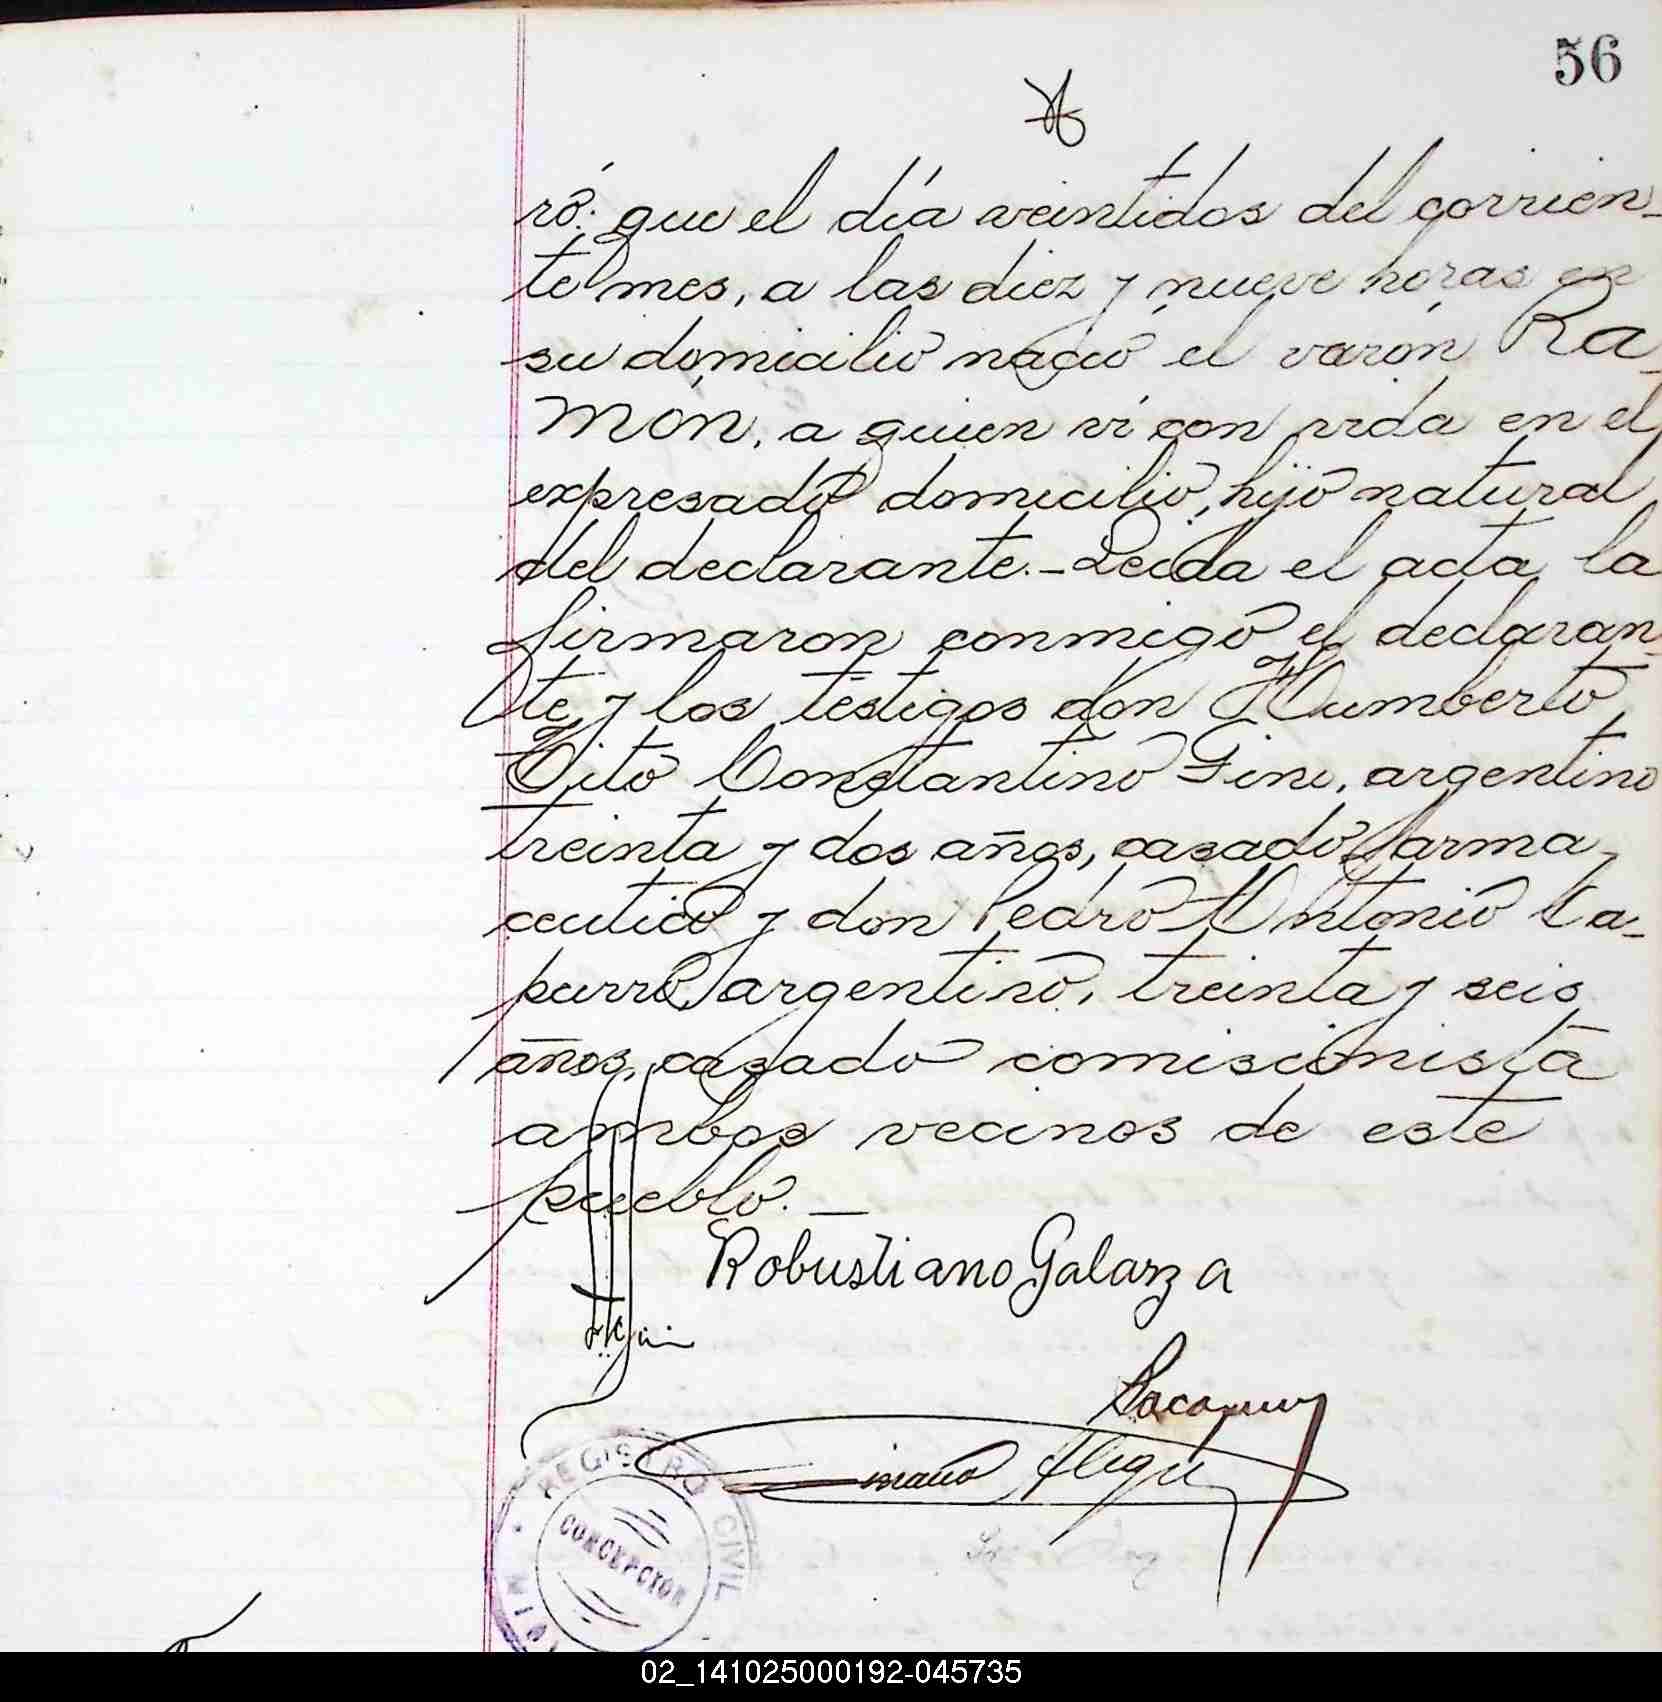 56
ró: que el día veintidos del corrien-
te mes, a las diez y nueve horas en
su domicilio nació el varón Ra-
món, a quien ví con vida en el
expresado domicilio, hijo natural
del declarante.- Leida el acta la
firmaron conmigo el declaran-
te y los testigos don Humberto
Tito Constantino Gini, argentino
treinta y dos años, casado, farma-
ceutico y don Pedro Antonio Ca-
purro, argentino, treinta y seis
años, casado comisionista
ambos vecinos de este
pueblo. —
Robustiano Galarza
REGISTRO CIVIL
CONCEPCION
02_141025000192-045735